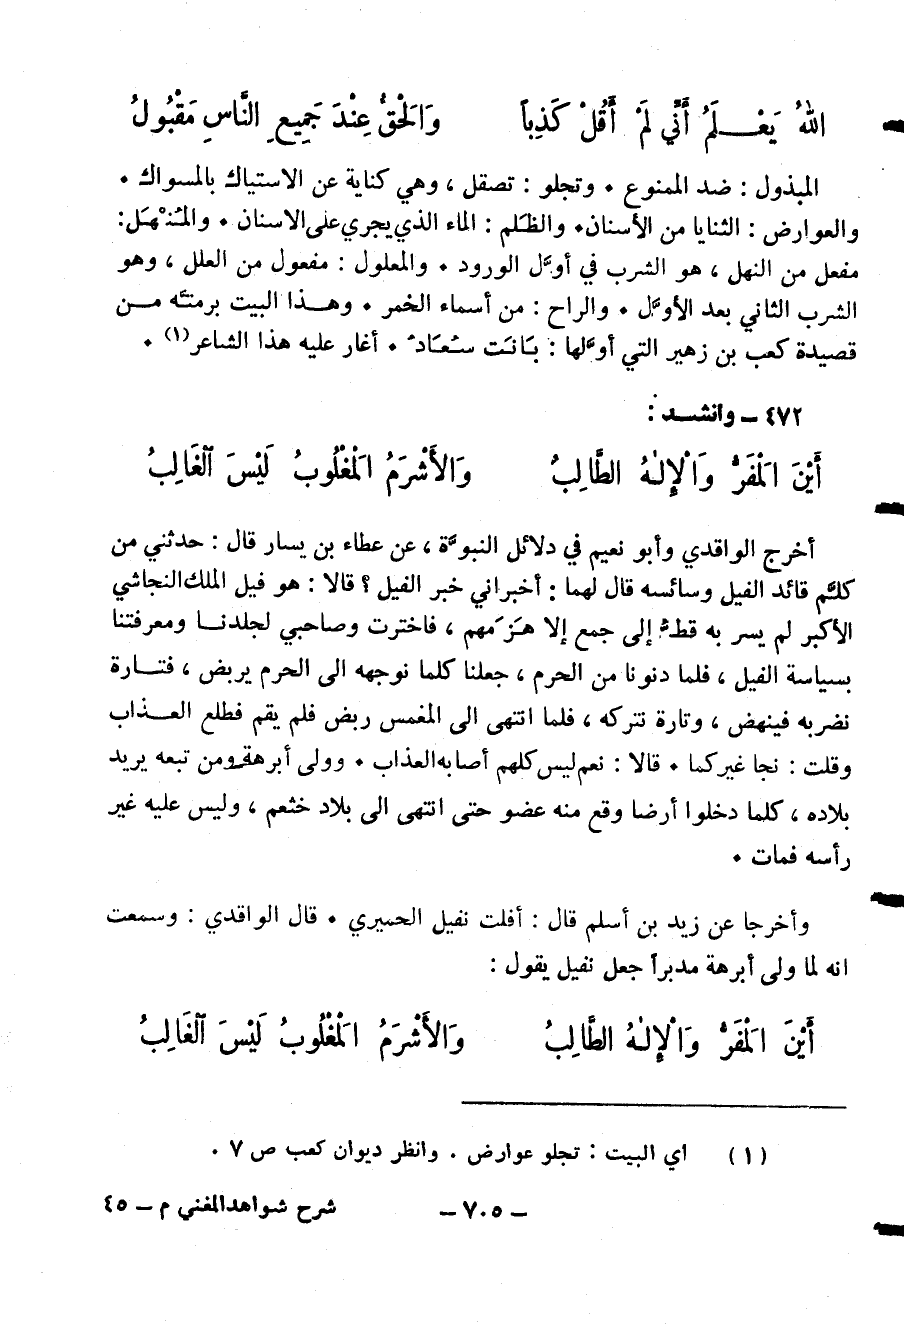 اللهُ يَعْــلَمُ أَنِّي لَمْ أَقُلْ كَذِباً وَالْحَقُّ عِنْدَ جَمِيعِ النَّاسِ مَقْبُولُ
المبذول : ضد الممنوع ٠ وتجلو : تصقل ، وهي كناية عن الاستياك بالمسواك ٠
والعوارض : الثنايا من الأسنان٠ والظَلم : الماء الذي يجري على الاسنان ٠ والمُنْهَل :
مفعل من النهل ، هو الشرب في أوّل الورود ٠ والمعلول : مفعول من العلل ، وهو
الشرب الثاني بعد الأوّل ٠ والراح : من أسماء الخمر ٠ وهــذا البيت برمتَّه مــن
قصيدة كعب بن زهير التي أوّلها : بَانَت سُعَادُ ٠ أغار عليه هذا الشاعر(١) ٠
٤٧٢ – وانشــد :
أَيْنَ الْمَفَرُّ وَالْإِلٰهُ الطَّالِبُ وَالأَشْرَمُ الْمَغْلُوبُ لَيْسَ الْغَالِبُ
أخرج الواقدي وأبو نعيم في دلائل النبوّة ، عن عطاء بن يسار قال : حدثني من
كلّم قائد الفيل وسائسه قال لهما : أخبراني خبر الفيل ؟ قالا : هو فيل الملك النجاشي
الأكبر لم يسر به قطّ إلى جمع إلا هَزَمهم ، فاخترت وصاحبي لجلدنــا ومعرفتنا
بسياسة الفيل ، فلما دنونا من الحرم ، جعلنا كلما نوجهه الى الحرم يربض ، فتــارة
نضربه فينهض ، وتارة نتركه ، فلما انتهى الى المغمس ربض فلم يقم فطلع العــذاب
وقلت : نجا غيركما ٠ قالا : نعم ليس كلهم أصابه العذاب ٠ وولى أبرهة ومن تبعه يريد
بلاده ، كلما دخلوا أرضا وقع منه عضو حتى انتهى الى بلاد خثعم ، وليس عليه غير
رأسه فمات ٠
وأخرجا عن زيد بن أسلم قال : أفلت نفيل الحميري ٠ قال الواقدي : وسمعت
انه لما ولى أبرهة مدبراً جعل نفيل يقول :
أَيْنَ الْمَفَرُّ وَالْإِلٰهُ الطَّالِبُ وَالأَشْرَمُ الْمَغْلُوبُ لَيْسَ الْغَالِبُ
(١) اي البيت : تجلو عوارض . وانظر ديوان كعب ص ٧ .
– ٧٠٥ – شرح شواهد المغني م – ٤٥